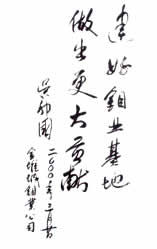 建好钼业基地
做出更大贡献
吴邦國
二〇〇〇年三月廿
金堆城钼業公司